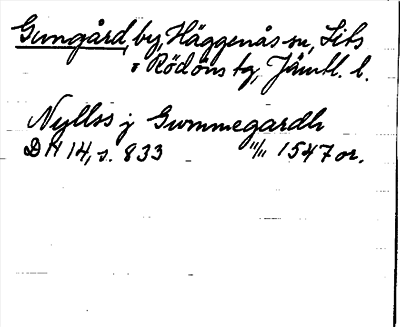 Gungård, by, Häggenås sn, Lits
o Rödöns tg, Jämtl. l.
Nyllss j Gummegardh
DN 14, s. 833 11/11 1547 or.